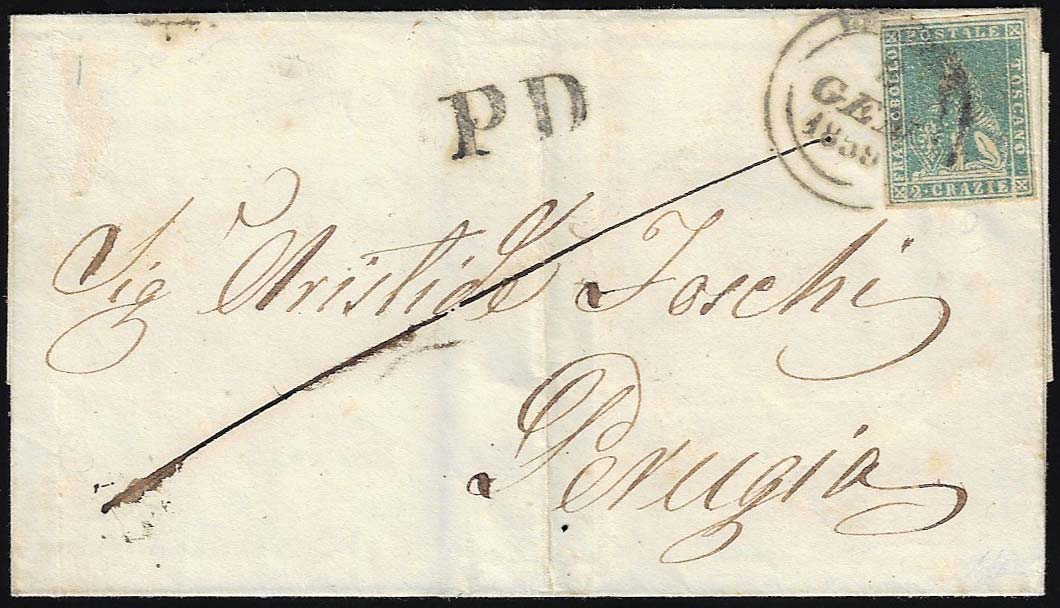 PD
GEN
1859
FRANCOBOLLO POSTALE TOSCANO
2 · CRAZIE
Sig Aristide Toschi
Perugia